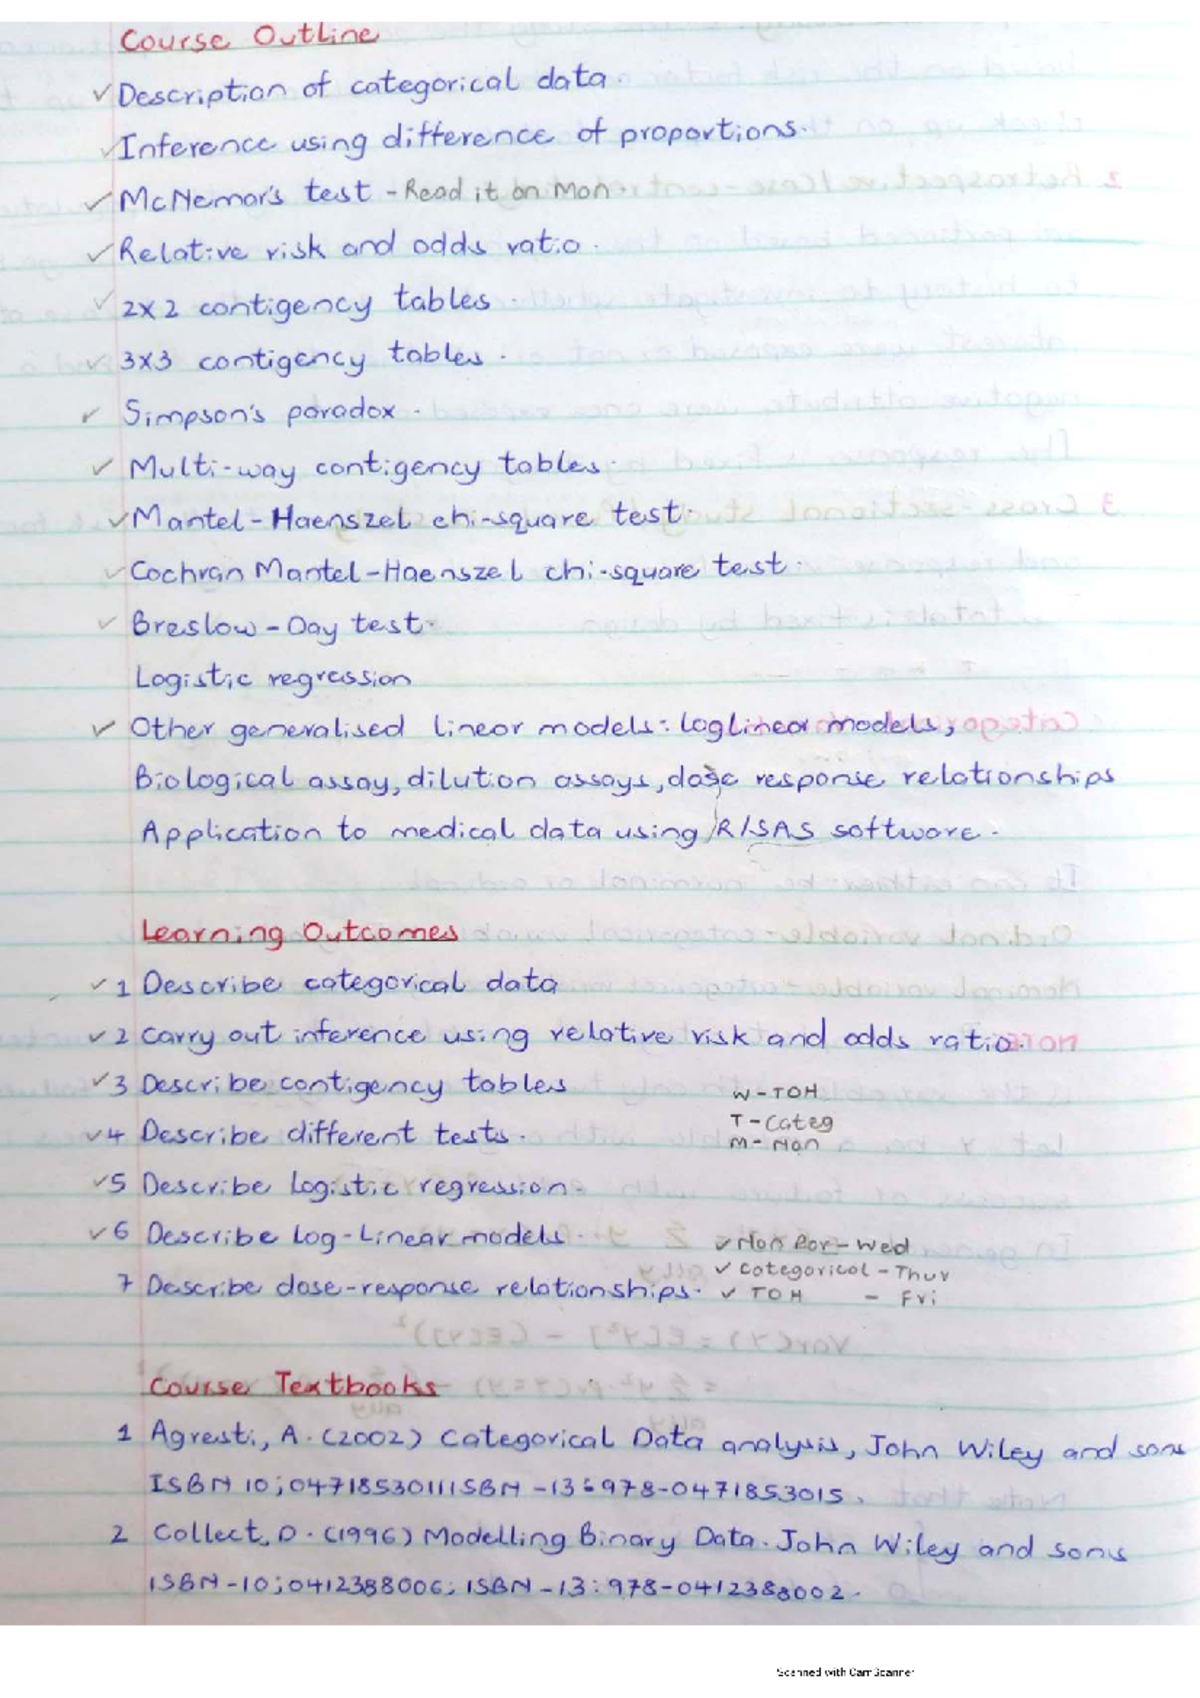 Course Outline
✓ Description of categorical data.
✓ Inference using difference of proportions.
✓ McNemar's test - Read it on Mon.
✓ Relative risk and odds ratio.
✓ 2x2 contigency tables.
✓ 3x3 contigency tables.
✓ Simpson's paradox.
✓ Multi-way contigency tables.
✓ Mantel-Haenszel chi-square test.
✓ Cochran Mantel-Haenszel chi-square test.
✓ Breslow-Day test.
Logistic regression
✓ Other generalised linear models: loglinear models,
Biological assay, dilution assays, dose response relationships
Application to medical data using R/SAS software.
Learning Outcomes
✓ 1 Describe categorical data
✓ 2 Carry out inference using relative risk and odds ratio.
✓ 3 Describe contigency tables
W-TOH
T-Categ
✓ 4 Describe different tests.
M-Non
✓ 5 Describe logistic regression.
✓ 6 Describe log-Linear models.
✓ Non Par - Wed
✓ Categorical - Thur
7 Describe dose-response relationships.
✓ TOH - Fri
Course Textbooks
1 Agresti, A. (2002) Categorical Data analysis, John Wiley and sons
ISBN 10; 0471853011 ISBN -13: 978-0471853015.
2 Collect, D. (1996) Modelling Binary Data. John Wiley and sons
ISBN-10; 0412388006; ISBN-13: 978-0412388002.
Scanned with CamScanner